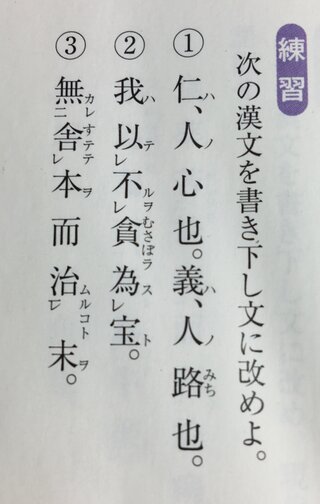 練習
次の漢文を書き下し文に改めよ。
① 仁ハ、人ノ心也。義ハ、人ノ路みち也。
② 我ハ以テレ不ルヲレ貪むさぼラ為スレ宝ト。
③ 無カレ二舎すテテレ本ヲ而治ムルコト一レ末ヲ。